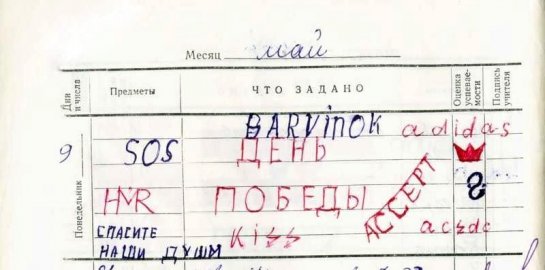 Месяц май
Дни и числа Предметы ЧТО ЗАДАНО Оценка успевае-мости Подпись учителя
BARVINOK adidas
9 SOS ДЕНЬ
Понедельник
HMR ПОБЕДЫ ACCEPT
СПАСИТЕ KISS acϟdc
НАШИ ДУШИ